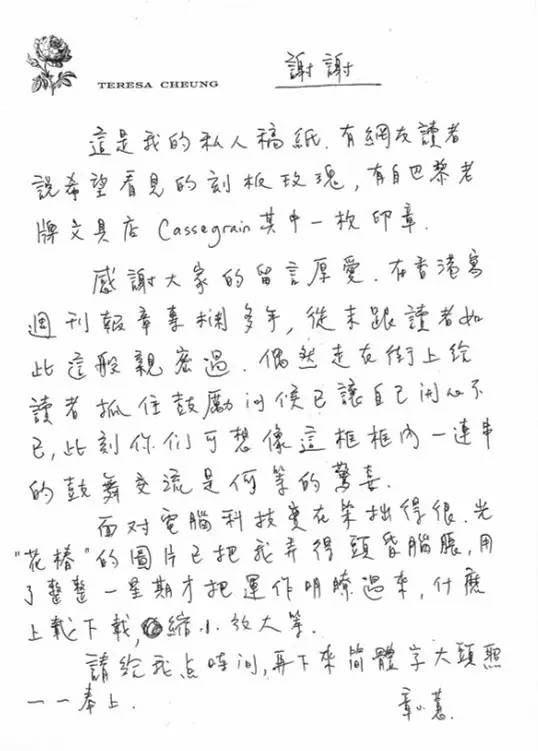 謝謝
TERESA CHEUNG
這是我的私人稿紙. 有網友讀者
説希望看見的刻板玫瑰, 有自巴黎老
牌文具店 Cassegrain 其中一枚印章.
感謝大家的留言厚愛. 在香港寫
週刊報章專欄多年, 從未跟讀者如
此這般親密過. 偶然走在街上給
讀者抓住鼓勵问候已讓自己開心不
已, 此刻你们可想像這框框内一連串
的鼓舞交流是何等的驚喜.
面对電腦科技實在笨拙得很. 光
"花椿"的圖片已把我弄得頭昏腦脹, 用
了整整一星期才把運作明瞭過來, 什麽
上載下載, 縮小放大等.
請給我点时间, 再下來简體字大頭照
一一奉上.
章小蕙.